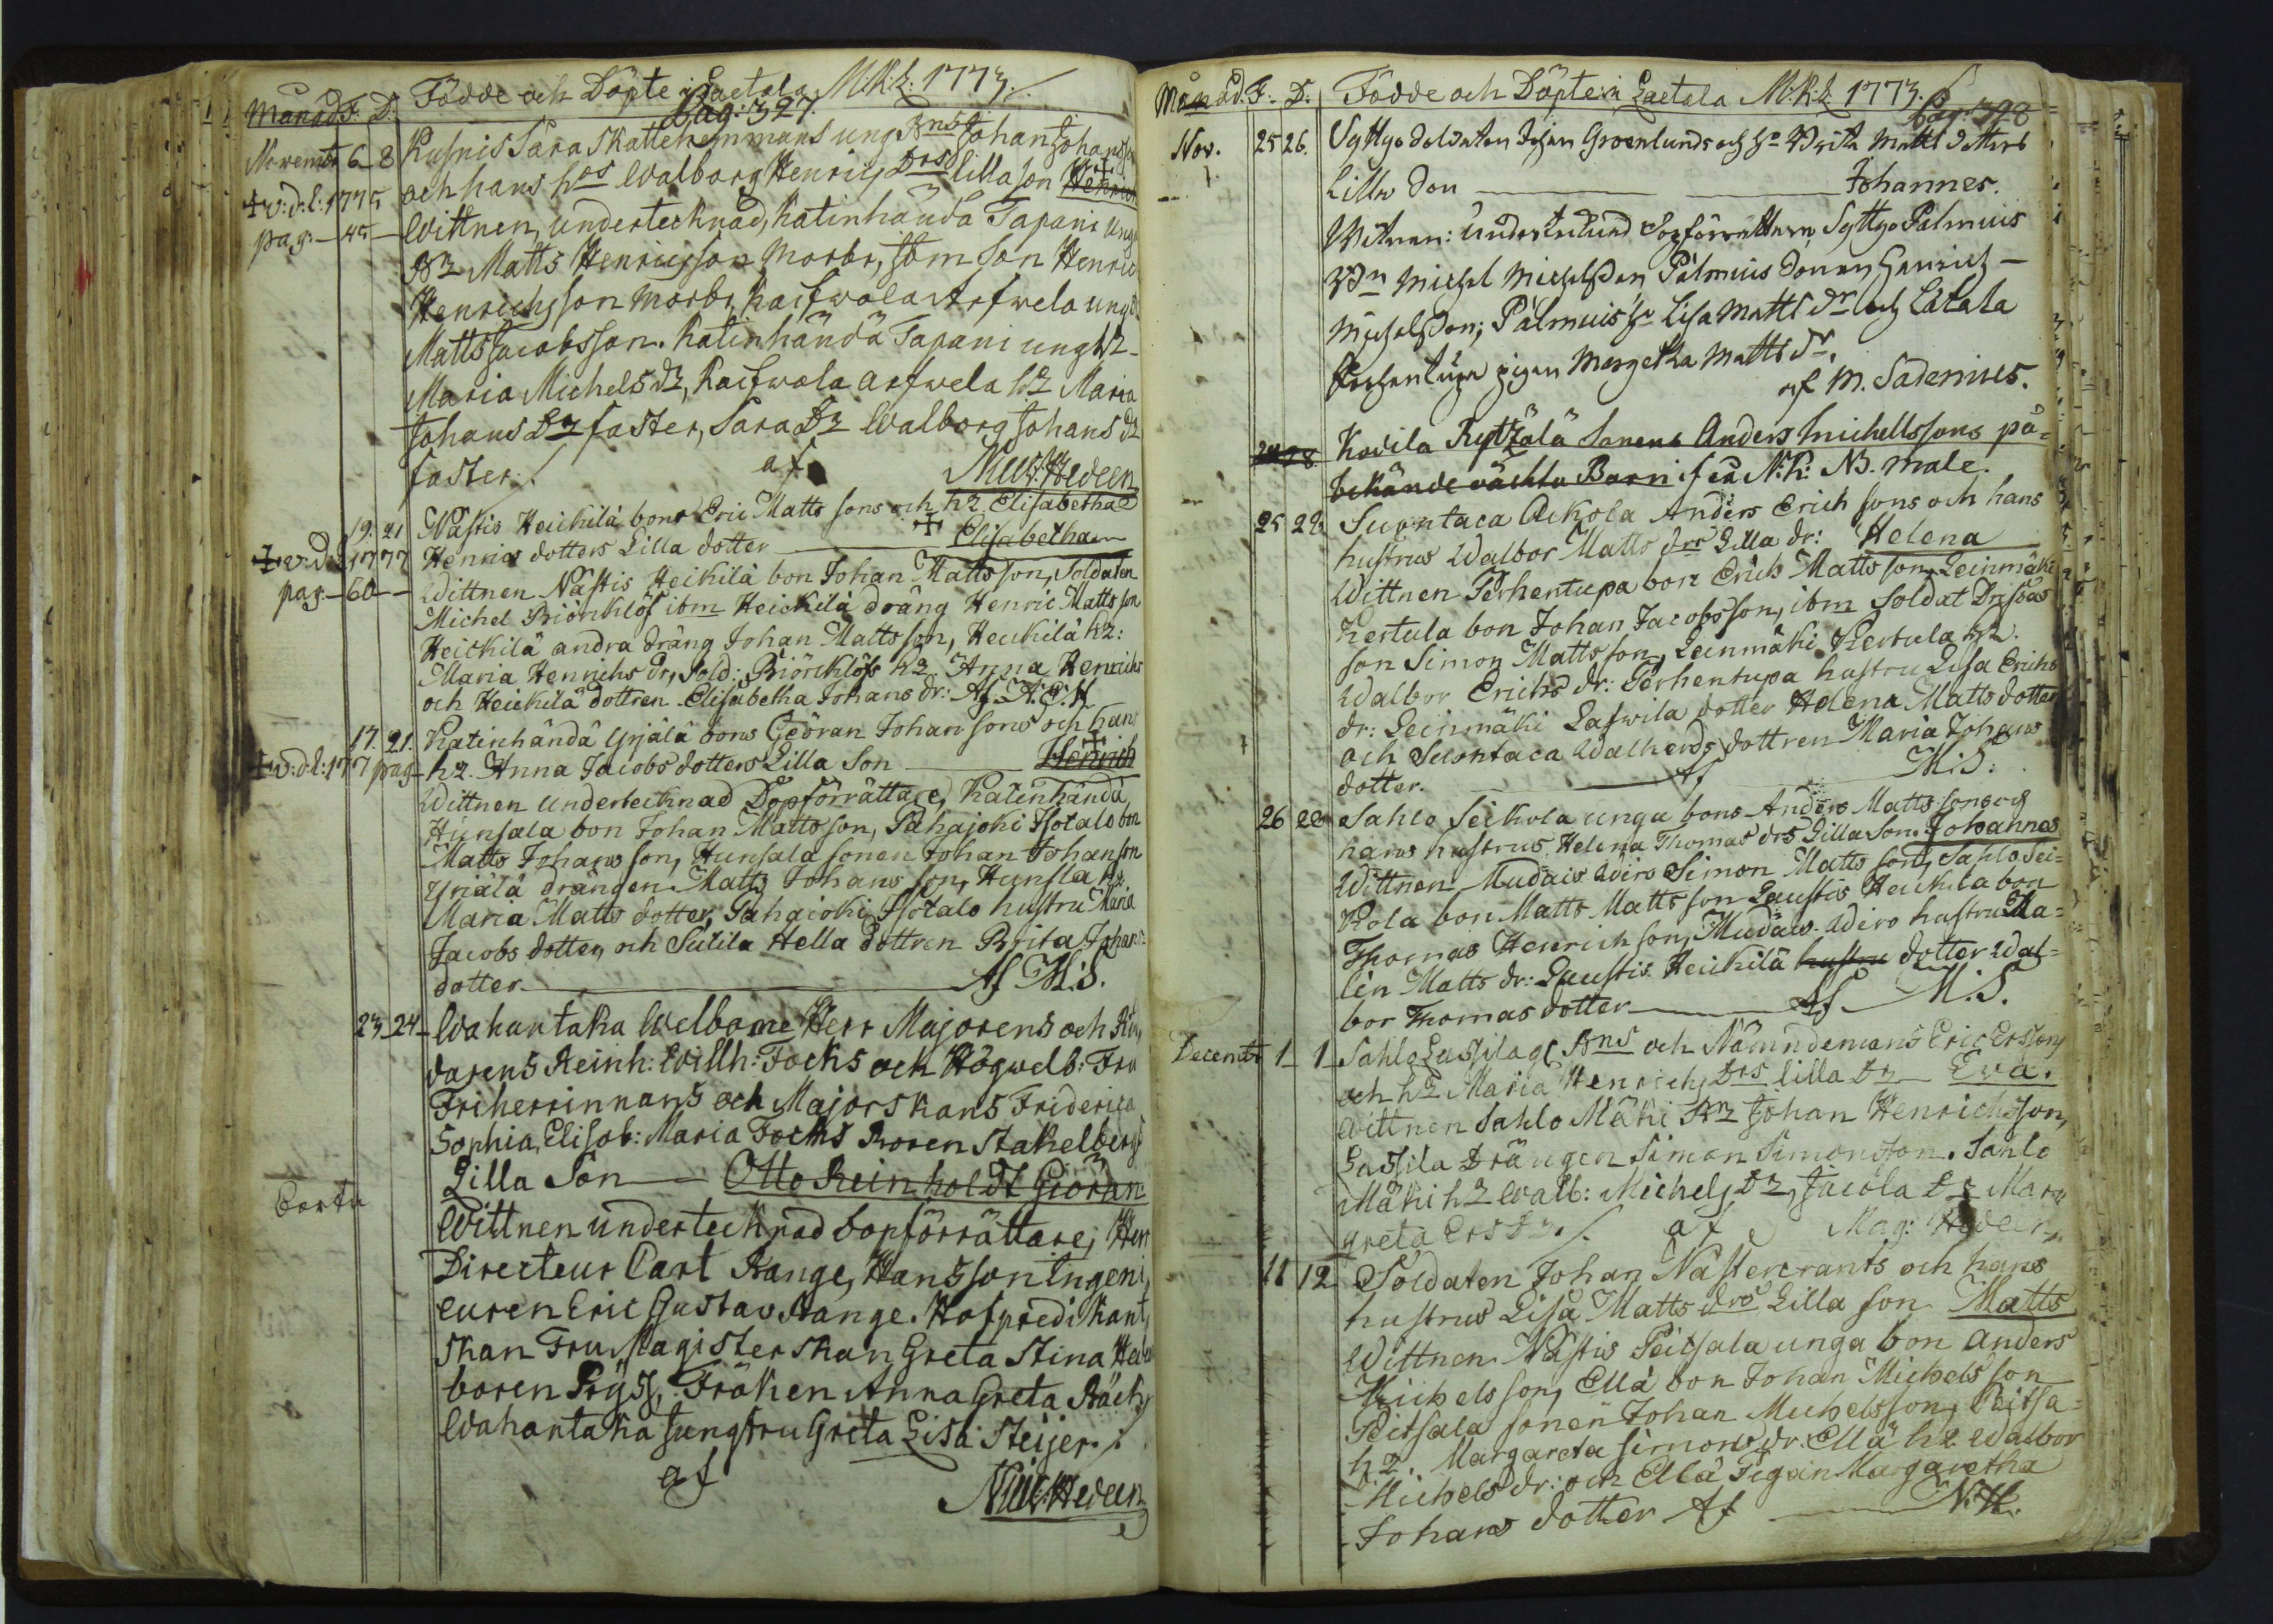 Månad F. D. Födde och Döpte i Laetala M:k:l: 1773.
Pag: 327.
November 6 8 Kusnis Sara Skattehemmans ung Bns Johan Johans
och hans hos Walborg Henrichs Drs lilla son Henric
† v:d:l: 1775
pag: 45
Wittnen, undertecknad, Katinhändä Tapani unga
Bn Matts Henricsson morbr, ibm Son Henric
Henrichsson morbr, Kaifwola Arfwela unga
Matts Jacobsson. Katinhändä Tapani ung h2
Maria Michels dr, Kaifwola Arfwela h2 Maria
Johans Dr faster, Sara Dr Walborg Johans dr
faster. af Hedeen
19. 21 Nästis Heickilä bons Eric Matts sons och h2 Elisabetha
† v:d:l 1777
pag: 60
Henrics dotters Lilla dotter † Elisabetha
Wittnen Nästis Heikilä bon Johan Mattsson, Soldaten
Michel Biörklöf ibm Heickilä dräng Henric Matts son
Heickilä andra dräng Johan Mattsson, Heickilä h2:
Maria Henrichs Dr, Sold: Biörcklöfs h2 Anna Henrichs
och Heickilä dottren Elisabetha Johans dr: Af
17. 21. Katinhändä Yrjälä bons Giöran Johan sons och hans
† v:d:l: 177 pag
h2. Anna Jacobs dotters Lilla Son Henrich
Wittnen undertecknad Dopförrättare, Katinhändä
Hunsala bon Johan Mattsson, Pahajoki Isotalo bon
Matts Johans son, Hunsala sonen Johan Johanson
Yriälä drängen Matts Johans son, Hunsla h2
Maria Matts dotter, Pahaioki Isotalo hustru Maria
Jacobs dotter, och Sutila Hella dottren Brita Johans
dotter Af M:S.
23 24 Wahantaka Welborne Herr Majorens och
darens Reinh: Willh: Focks och Högwelb: Fru
Friherrinnans och Majorskans Friderica
Sophia, Elisab: Maria Focks boren Stakelberg
Lilla Son Otto Reinholdt Giöran
Wittnen undertecknad dopförrättare, Herr
Directeur Carl Bange, Hans son Ingeni
euren Eric Gustav Bange. Hofpredikant
skan Fru Magisterskan Greta Stina Hedeen
boren Pryss, Fröken Anna Greta
Wahantaka Jungfru Greta Lisa Steijer.
af
Hedeen
Månad. F. D. Födde och Döpte i Laetala M:k:l: 1773.
Pag: 328
Nov. 25 26. Syttyo Soldaten Johan Groenlunds och h2 Brita Matts dotters
Lilla Son Johannes.
Wittnen: Undertecknad Dopförrättare, Syttyo Palmuis
Bn Michel Michelsson, Palmuis Sonen Henrich
Michelsson; Palmuis h2 Lisa Matts dr och Låtala
pigan Margetha Matts dr.
af M. Sadenius.
24 28 Kovila Rytzälä Sonens Anders Michellssons på=
bekände oächta Barn NB. male.
25 28 Suontaca Ackola Anders Erich sons och hans
hustrus Walbor Matts drs Lilla dr: Helena
Wittnen Perhentupa bon Erich Matts son, Leinmäki
Kertula bon Johan Jacobsson, ibm Soldat
son Simon Matts son, Leinmäki Kertula h2.
Walbor Erichs dr: Perhentupa hustru Lisa Erichs
dr: Leinmäki Laswila dotter Helena Matts dotter
och Suontaca dottren Maria Johans
dotter. Af M:S:
26 28 Sahlo Seikola unga bons Anders Matts sons och
hans hustrus Helena Thomas drs Lilla Son. Johannes
Wittnen Mudais Wiro Simon Matts son, Sahlo Sei=
kola bon Matts Matts son Laustis Heickila bon
Thomas Henrich son, Mudais Wiro hustru Ma=
lin Matts dr: Laustis Heickilä hustru dotter Wal=
bor Thomas dotter Af M.S.
December 1 1 Sahlo Lassila gl Bns och Nämndemans Eric Erssons
och h2 Maria Henrichs Drs lilla Dr Eva.
Wittnen Sahlo Mäki Bn Johan Henrichsson,
Lassila Drängen Simon Simonsson. Sahlo
Mäki h2 Walb: Michels Dr, Jacola Dr Mar
greta Ers Dr. af Mag: Hedeen
11 12 Soldaten Johan Nästercrants och hans
hustrus Lisa Matts drs Lilla son Matts
Wittnen Nästis Peitsala unga bon Anders
Michels son, Ellä bon Johan Michels son
Peitsala sonen Johan Michelsson, Peitsa=
h2. Margareta Simons dr. Ellä h2 Walbor
Michels dr: och Ellä Pigan Margaretha
Johans dotter Af N:H.